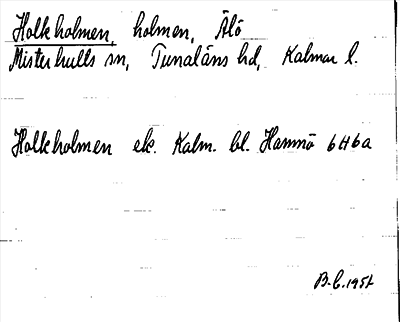 Holkholmen, holmen, Älö
Misterhults sn, Tunaläns hd, Kalmar l.
Holkholmen ek. Kalm. bl. Hamnö 6H6a
B.C. 1957